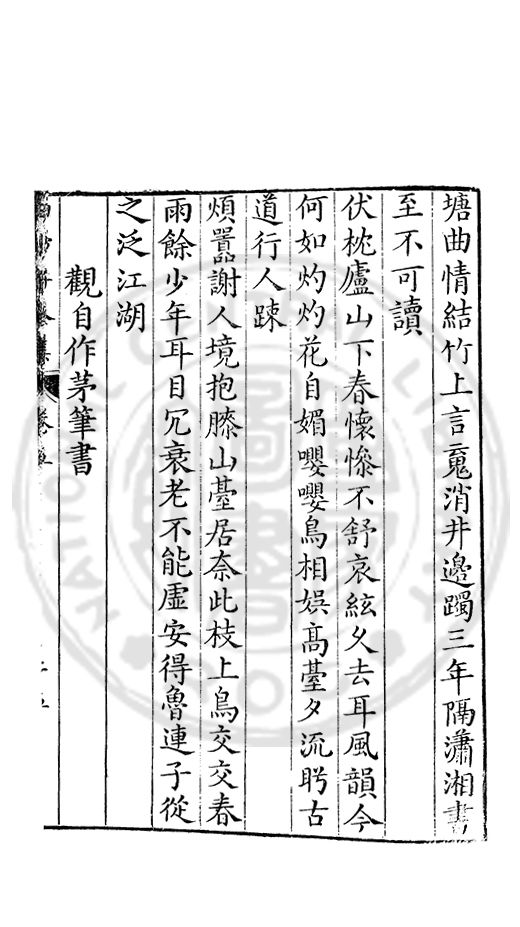 塘曲情結竹上言䰟消井邊躅三年隔瀟湘書
至不可讀
伏枕廬山下春懷慘不舒哀絃久去耳風韻今
何如灼灼花自媚嚶嚶鳥相娛高臺夕流眄古
道行人踈
煩囂謝人境抱膝山臺居奈此枝上鳥交交春
雨餘少年耳目冗衰老不能虛安得魯連子從
之泛江湖
觀自作茅筆書